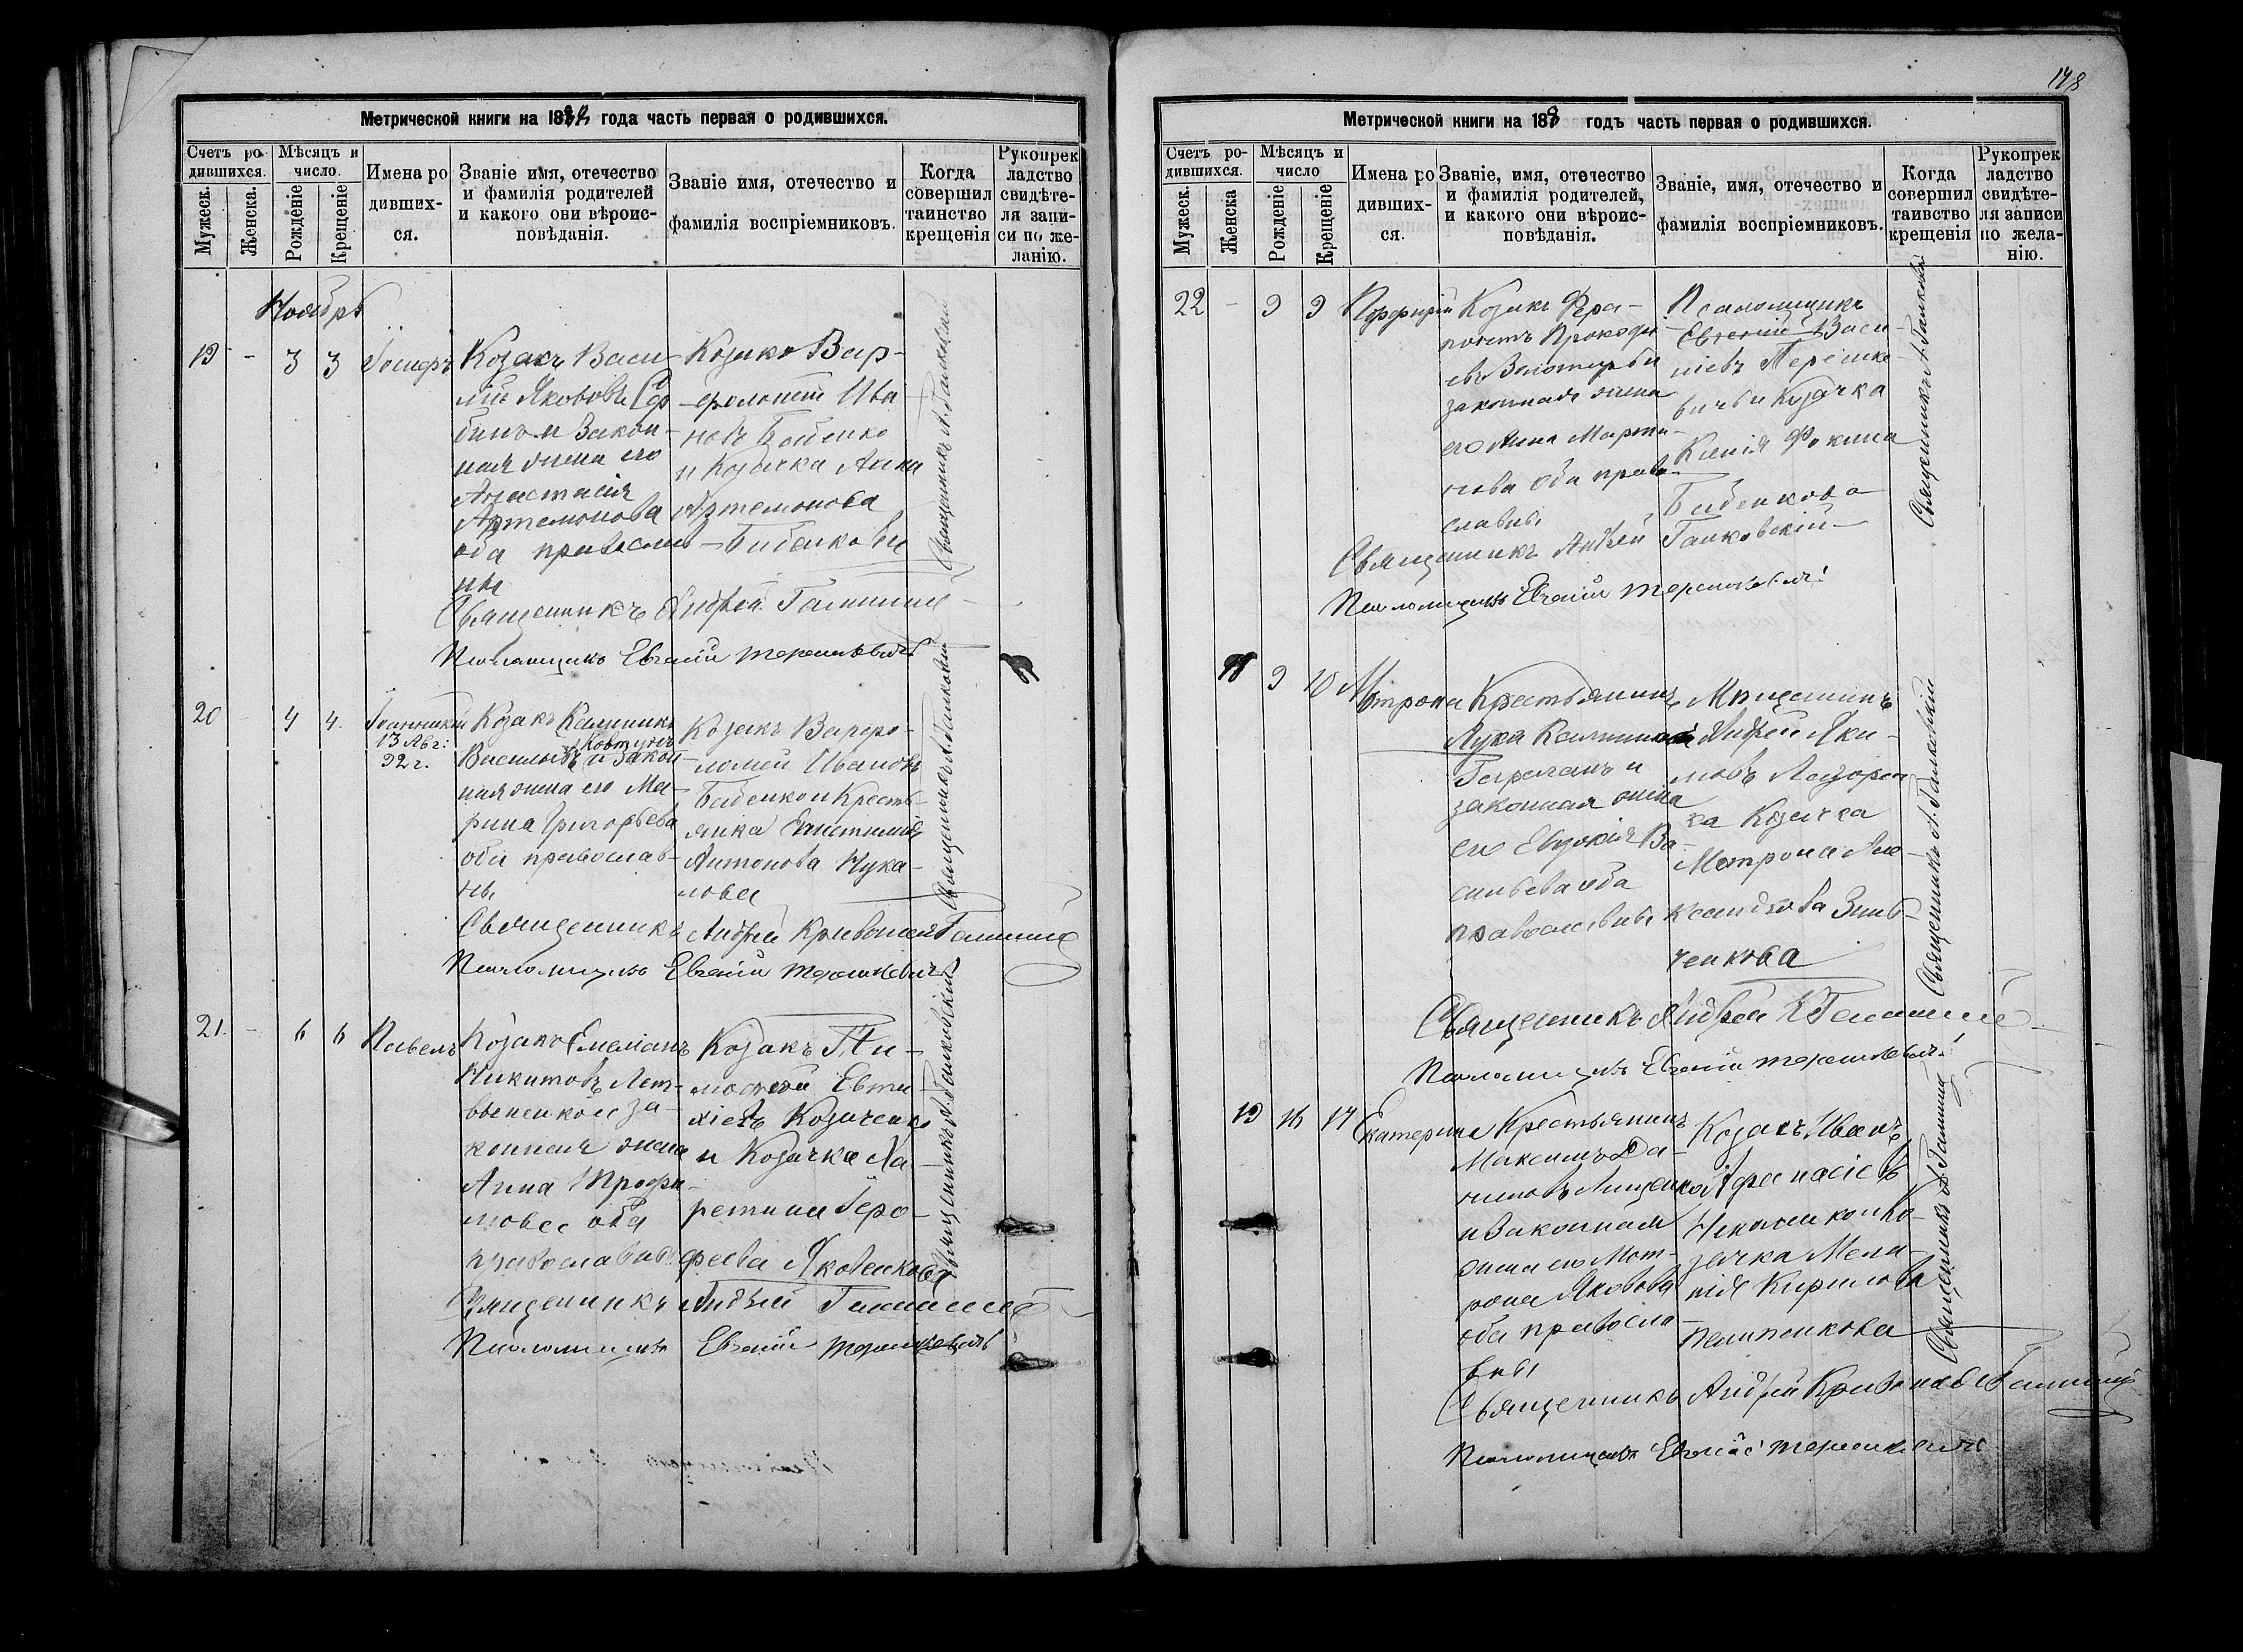 Метрической книги на 1882 года часть первая о родившихся.
Счетъ родившихся.
Мужеск.
Женска.
Мѣсяцъ и число.
Рожденіе
Крещеніе
Имена родивших-
ся.
Званіе имя, отечество
и фамилія родителей
и какого они вѣроис-
повѣданія.
Званіе имя, отечество и
фамилія воспріемниковъ.
Когда
совершил
таинство
крещенія
Рукопрек
ладство
свидѣте-
ля запи-
си по же-
ланію.
Ноябрь
19 - 3 3 Іосифъ
Козакъ Васи-
лій Якововъ
и закон-
ная жена его
Анастасія
Артемонова
оба православ-
ны
Козакъ Вар-
фоломей Ива-
новъ Бабенко
и Козачка Анна
Артемонова
Бабенкова
Священникъ А. Галковскій
Священникъ Андрей
Псаломщикъ Евгеній Терешкевичъ
20 - 4 4. Іоанникій
13 Авг:
92 г.
Козакъ Калиникъ
Васильевъ Ковтунъ и закон-
ная жена его Ма-
рина Григорьева
оба православ-
ны
Козакъ Варфо-
ломей Ивановъ
Бабенко и Кресть-
янка
Антонова Чука-
лова
Священникъ А. Галковскій
Священникъ Андрей
Псаломщикъ Евгеній Терешкевичъ
21. - 6 6 Павелъ
Козакъ Емеліанъ
Никитовъ Лит-
виненко и за-
конная жена
Анна Трофи-
мова оба
православны
Козакъ Ти-
мофей Евти-
хіевъ Козаченко
и Козачка Ха-
ритина Іеро-
феева Яковенкова
Священникъ А. Галковскій
Священникъ Андрей
Псаломщикъ Евгеній Терешкевичъ
Метрической книги на 188 годъ часть первая о родившихся.
Счетъ ро-
дившихся.
Мужеск.
Женска
Мѣсяцъ и
число
Рожденіе
Крещеніе
Имена ро
дивших-
ся.
Званіе, имя, отечество
и фамилія родителей,
и какого они вѣроис-
повѣданія.
Званіе, имя, отечество и
фамилія воспріемниковъ.
Когда
совершил
таивство
крещенія
Рукопрек
ладство
свидѣте-
ля записи
по жела-
нію.
22 - 9 9 Порфирій
Козакъ Фера-
понтъ Прокофь-
евъ
законная жена
его Анна Марти-
нова оба право-
славны
Псаломщикъ
Евгеній Васи-
ліевъ Терешке-
вичъ и Козачка
Ксенія Фокина
Бабенкова
Священникъ А. Галковскій
Священникъ Андрей Галковскій
Псаломщикъ Евгеній Терешкевичъ
18 9 10 Матрона
Крестьянинъ
Лука
законная жена
его Евдокія Ва-
сильева оба
православны
Мѣщанинъ
Андрей Яки-
мовъ
Козачка
Матрона Але-
ксандрова Зинь-
ченкова
Священникъ А. Галковскій
Священникъ Андрей
Псаломщикъ Евгеній Терешкевичъ
19 16 17 Екатерина
Крестьянинъ
Максимъ Да-
ниловъ Лищенко
и законная
жена его Мат-
рона Яковова
оба правосла-
вны
Козакъ Иванъ
Афанасіевъ
и Ко-
зачка Мела-
нія Кирилова
Священникъ А.
Священникъ Андрей
Псаломщикъ Евгеній Терешкевичъ